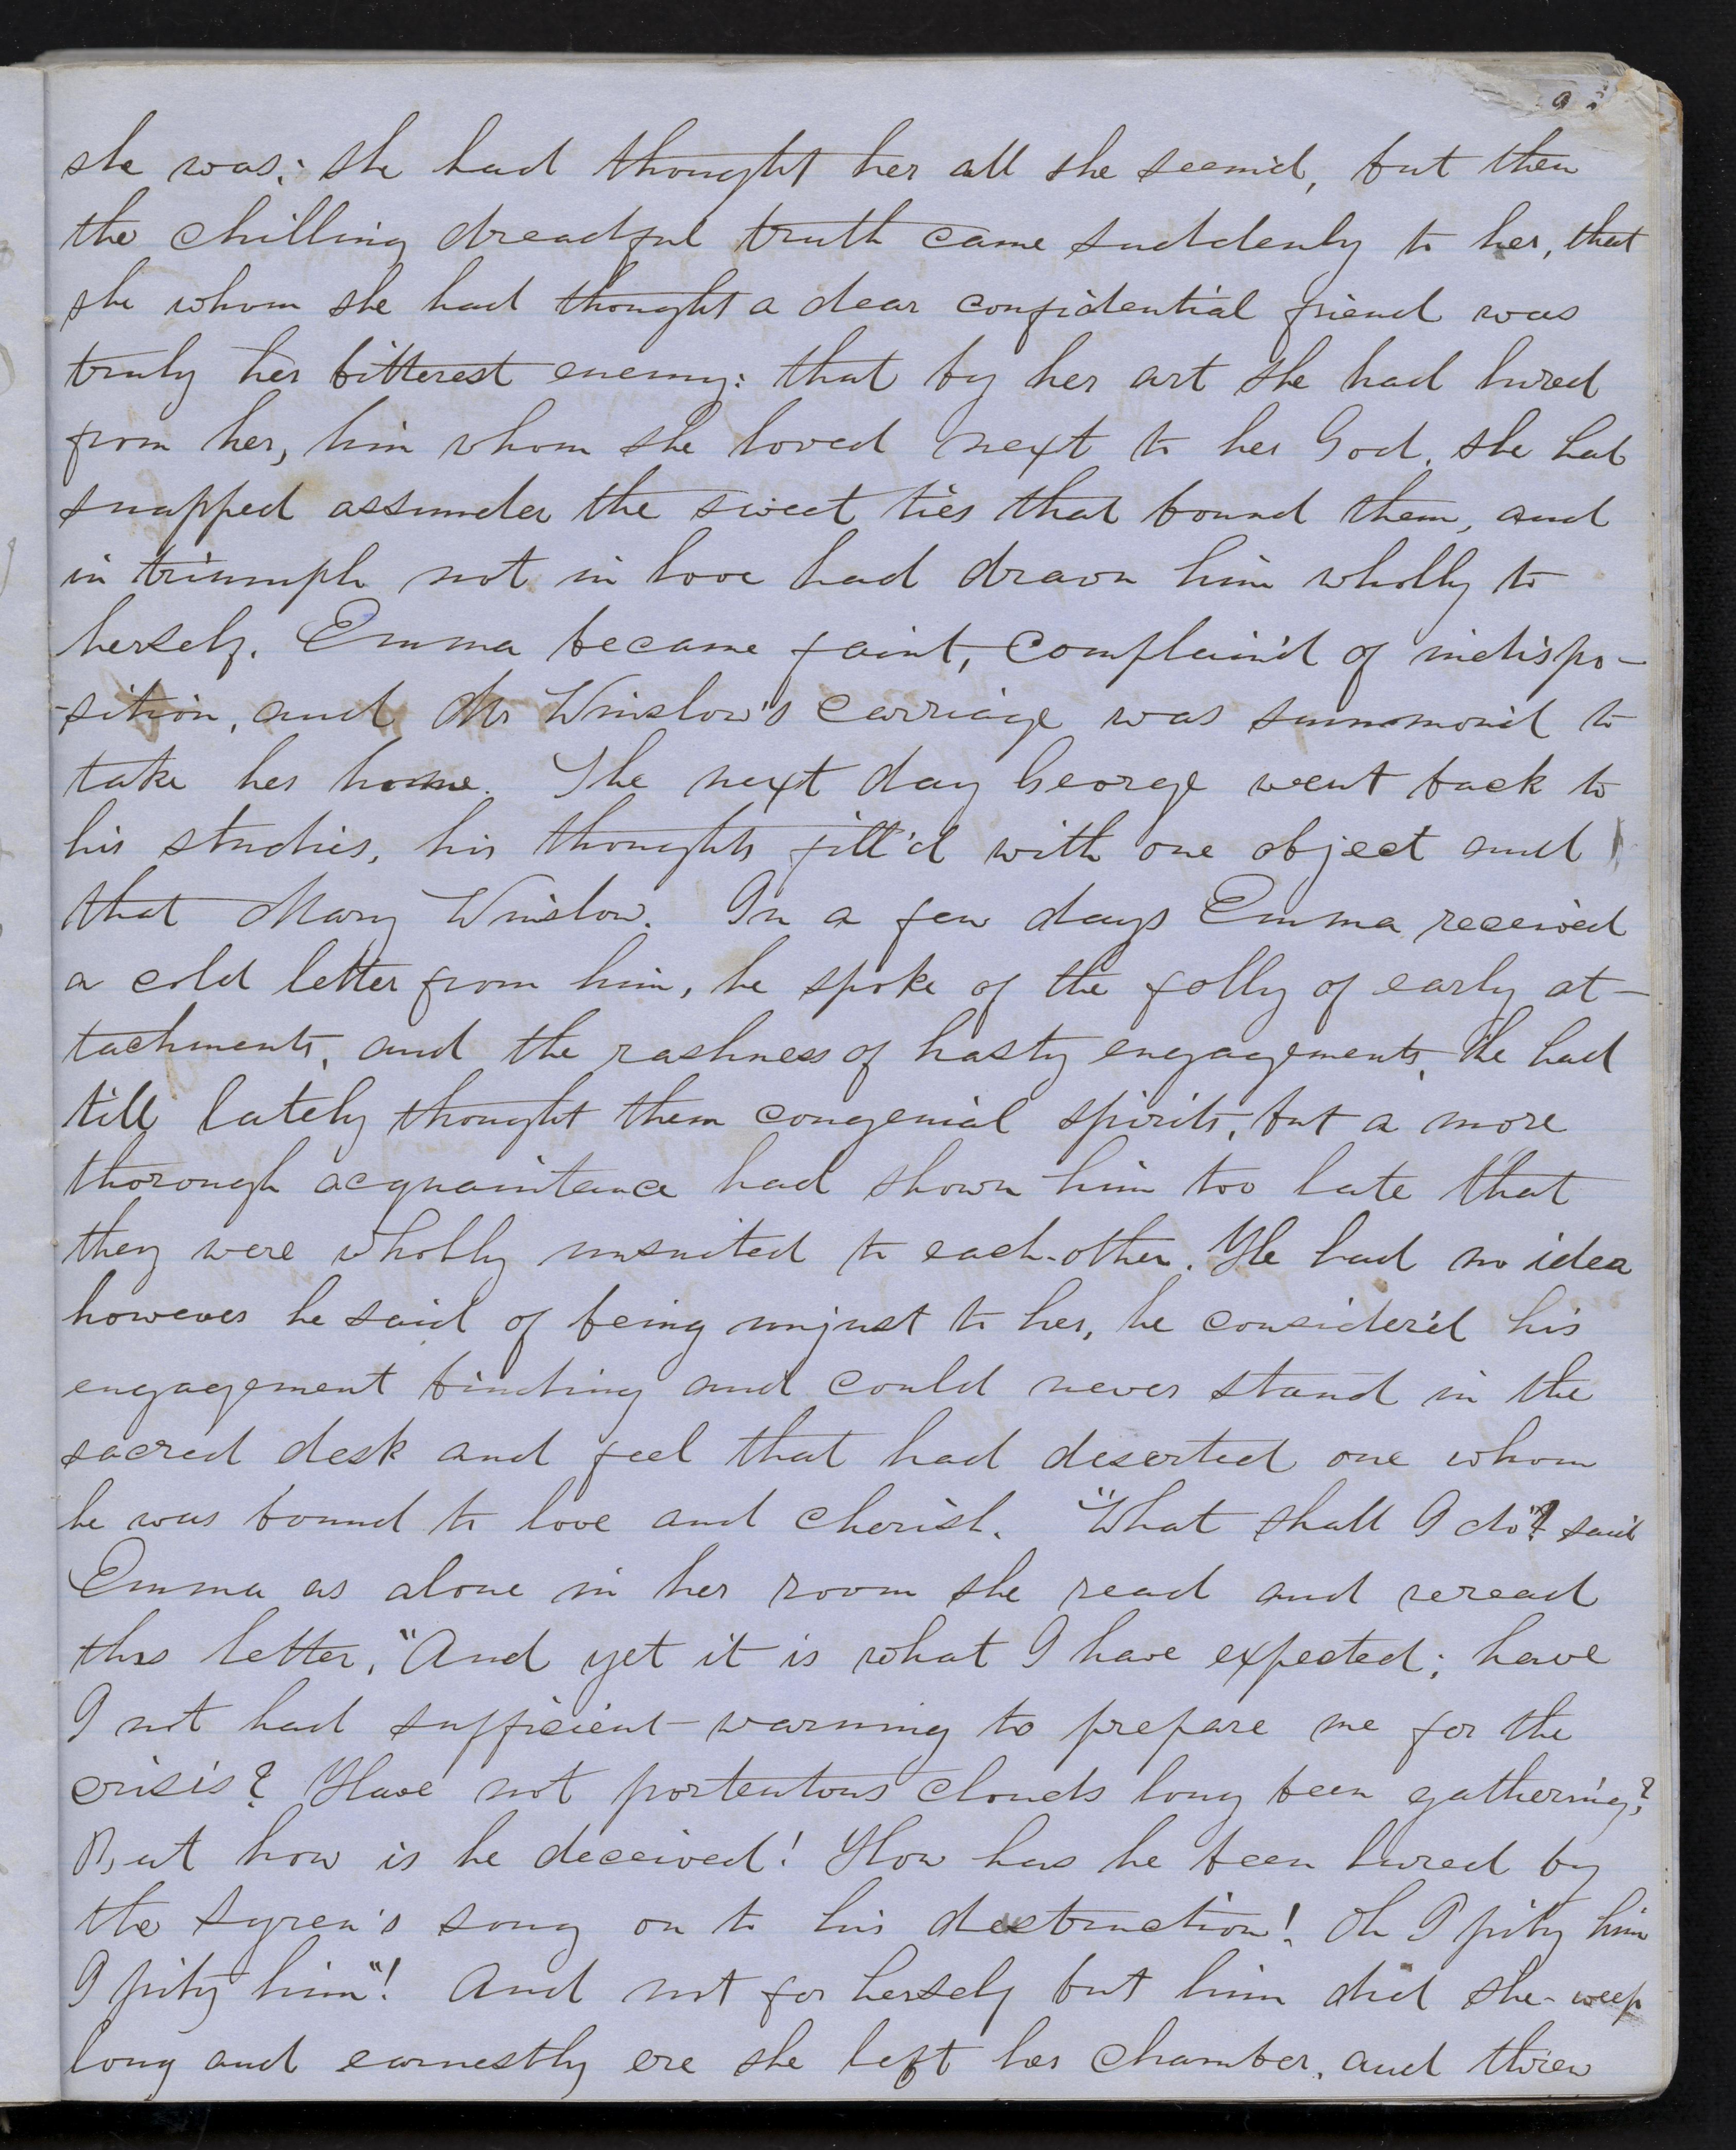 she was; she had thought her all she seem'd, but then
the chilling dreadful truth came suddenly to her, that
she whom she had thought a dear confidential friend was
truly her bitterest enemy: that by her art she had lured
from her, him whom she loved next to her God. she had
snapped assunder the sweet ties that bound them, and
in triumph not in love had drawn him wholly to
herself. Emma became faint, complain'd of indispo-
-sition, and Mr Winslow's carriage was summon'd to
take her home. The next day George went back to
his studies, his thoughts fill'd with one object and
that Mary Winslow. In a few days Emma received
a cold letter from him, he spoke of the folly of early at-
tachments, and the rashness of hasty engagements, He had
till lately thought them congenial spirits, but a more
thorough acquaintance had shown him too late that
they were wholly unsuited to each-other. He had no idea
however he said of being unjust to her, he consider'd his
engagement binding and could never stand in the
sacred desk and feel that had deserted one whom
he was bound to love and cherish. "What shall I do"? said
Emma as alone in her room she read and reread
this letter, "And yet it is what I have expected; have
I not had sufficient warning to prepare me for the
crisis? Have not portentous clouds long been gathering?
But how is he deceived! How has he been lured by
the syren's song on to his destruction! Oh I pity him
I pity him"! And not for herself but him did she weep
long and earnestly ere she left her chamber, and threw